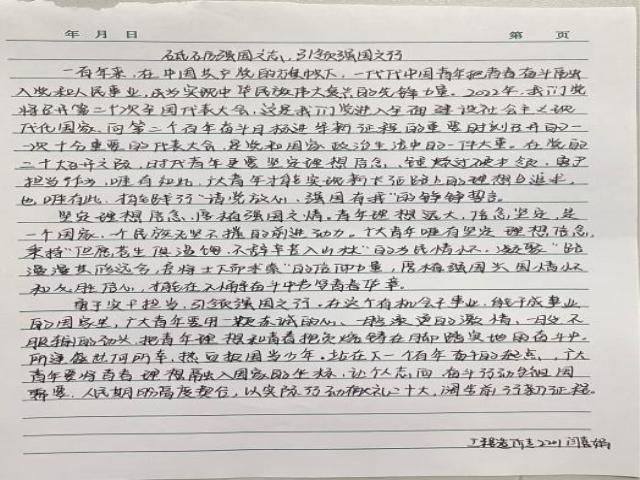 年 月 日 第 页
砥砺强国之志，引领强国之行
一百年来，在中国共产党的旗帜下，一代代中国青年把青春奋斗融
入党和人民事业，成为实现中华民族伟大复兴的先锋力量。2022年，我们党
将召开第二十次全国代表大会，这是我们党进入全面建设社会主义现
代化国家、向第二个百年奋斗目标进军新征程的重要时刻召开的一
次十分重要的代表大会，是党和国家政治生活中的一件大事。在党的
二十大召开之际，时代青年更要坚定理想信念，锤炼过硬本领，勇于
担当作为，唯有如此，广大青年才能实现新长征路上的理想与追求，
也唯有此，才能践行“请党放心，强国有我”的铮铮誓言。
坚定理想信念，厚植强国之情。青年理想远大，信念坚定，是
一个国家、一个民族无坚不摧的前进动力。广大青年唯有坚定理想信念，
秉持“但愿苍生俱温饱，不辞辛苦入山林”的为民情怀，凝聚“路
漫漫其修远兮，吾将上下而求索”的信仰力量，厚植强国兴国情怀
和必胜信心，才能在不懈奋斗中书写青春华章。
勇于实干担当，引领强国之行。在这个有机会干事业，能干成事业
的国家里，广大青年要用一颗赤诚的心、一腔滚烫的激情、一股不
服输的劲头，把青年理想和青春把交熔铸在脚踏实地的奋斗中。
所逢盛世河所幸，热血报国当少年。站在下一个百年奋斗的起点，广大
青年要将青春理想融入国家的坐标，让个人志向、奋斗行动与祖国
需要、人民期盼高度契合，以实际行动献礼二十大，阔步前行新征程。
工程造价2201 闫喜娟